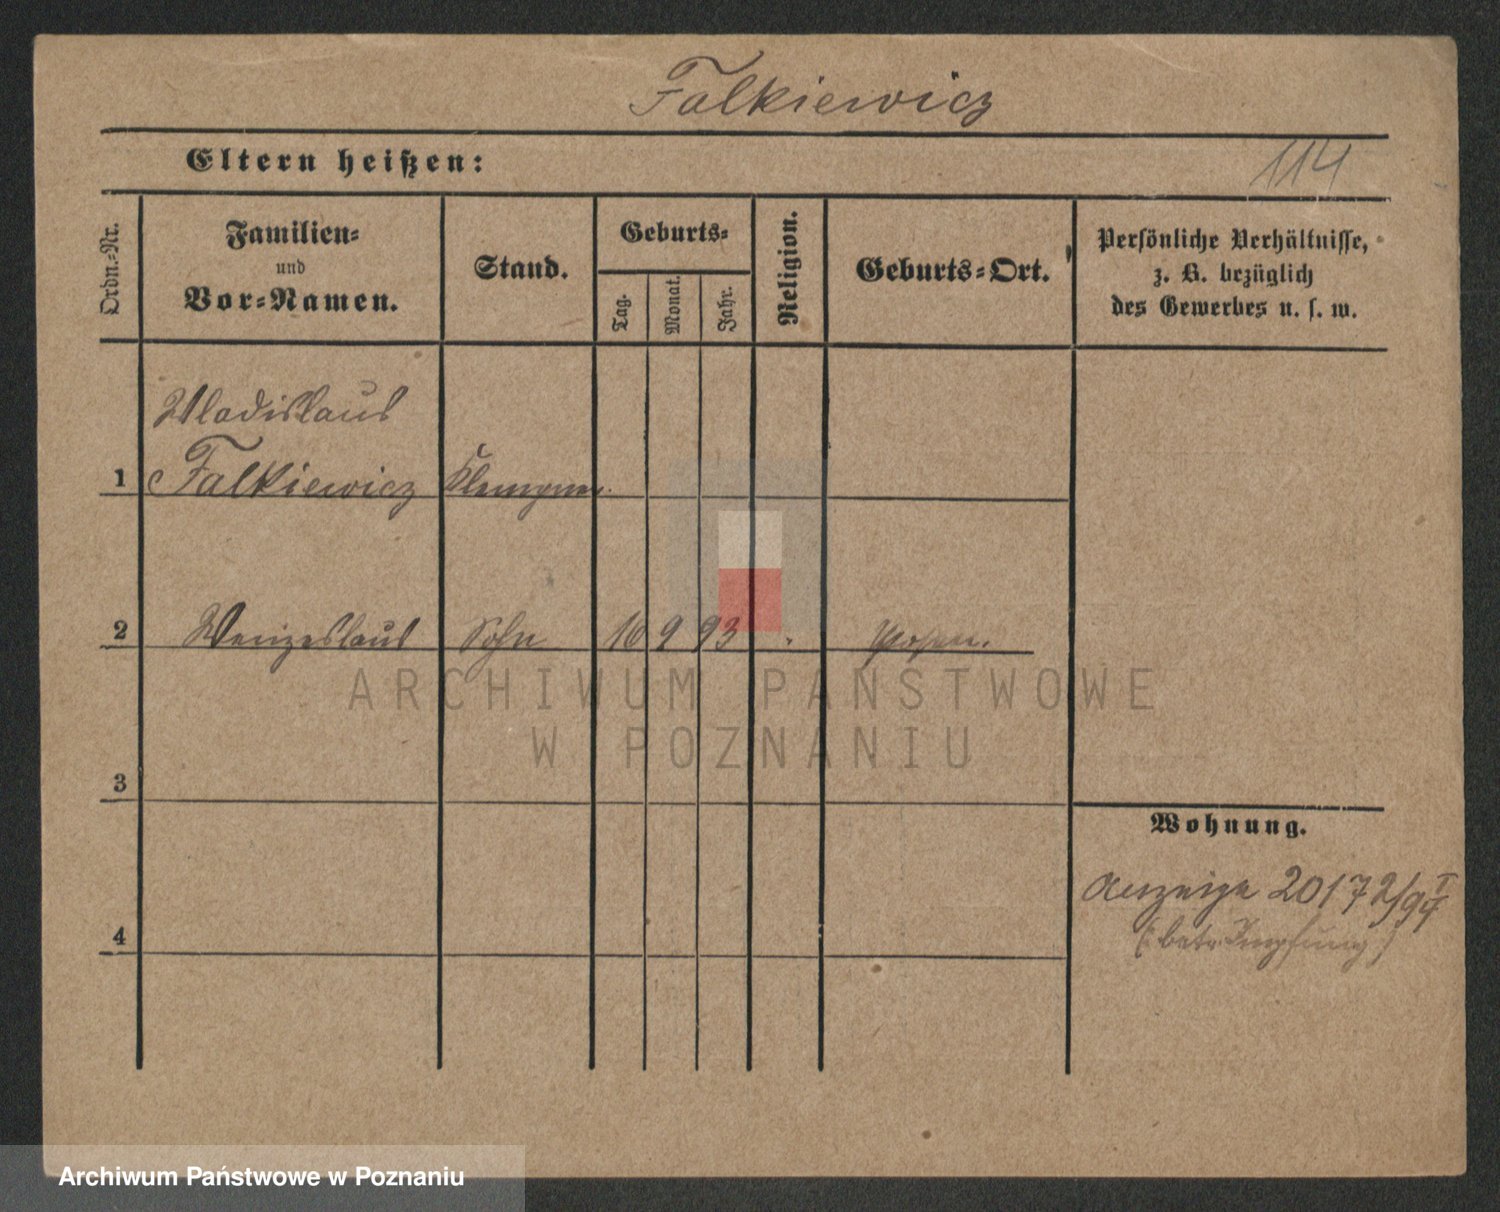 Falkiewicz
Eltern heißen:
114
Ordn.-Nr.
Familien-
und
Vor-Namen.
Stand.
Geburts-
Tag.
Monat.
Jahr.
Religion.
Geburts-Ort.
Persönliche Verhältnisse,
z. B. bezüglich
des Gewerbes u. s. w.
Wladislaus
1 Falkiewicz Klempner.
2 Wenzeslaus Sohn 16 9 93 Posen.
ARCHIWUM PAŃSTWOWE
W POZNANIU
3
Wohnung.
Anzeige 20172/94 I
(betr. Impfung)
4
Archiwum Państwowe w Poznaniu